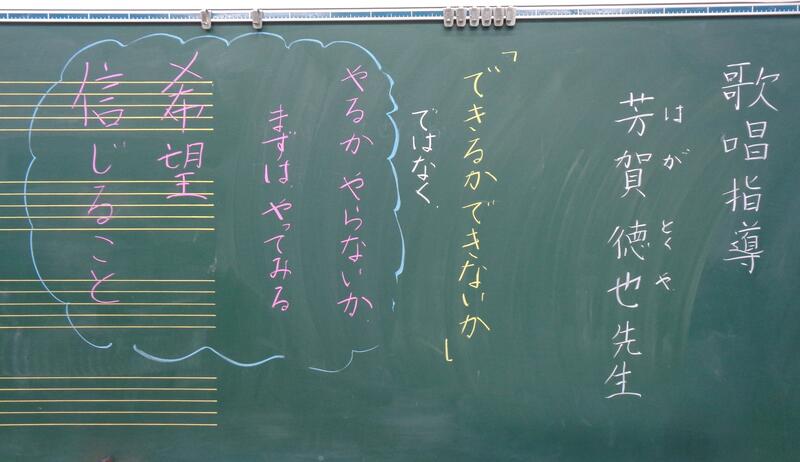 歌唱指導
芳賀徳也先生
はが とくや
「できるかできないか」
ではなく、
やるかやらないか、
まずは、やってみる
希望
信じること